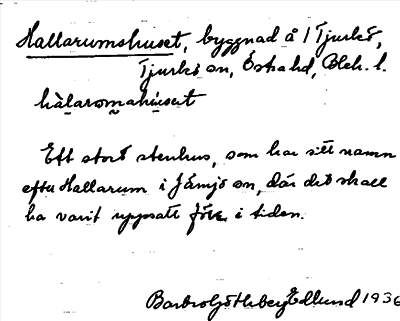 Hallarumshuset, byggnad å 1 Tjurkö,
Tjurkö sn, Östra hd, Blek. l.
hàlaromahúsat
Ett stort stenhus, som har sitt namn
efter Hallarum i Jämjö sn, där det skall
ha varit uppsatt förr i tiden.
Barbro Götheberg Edlund 1936